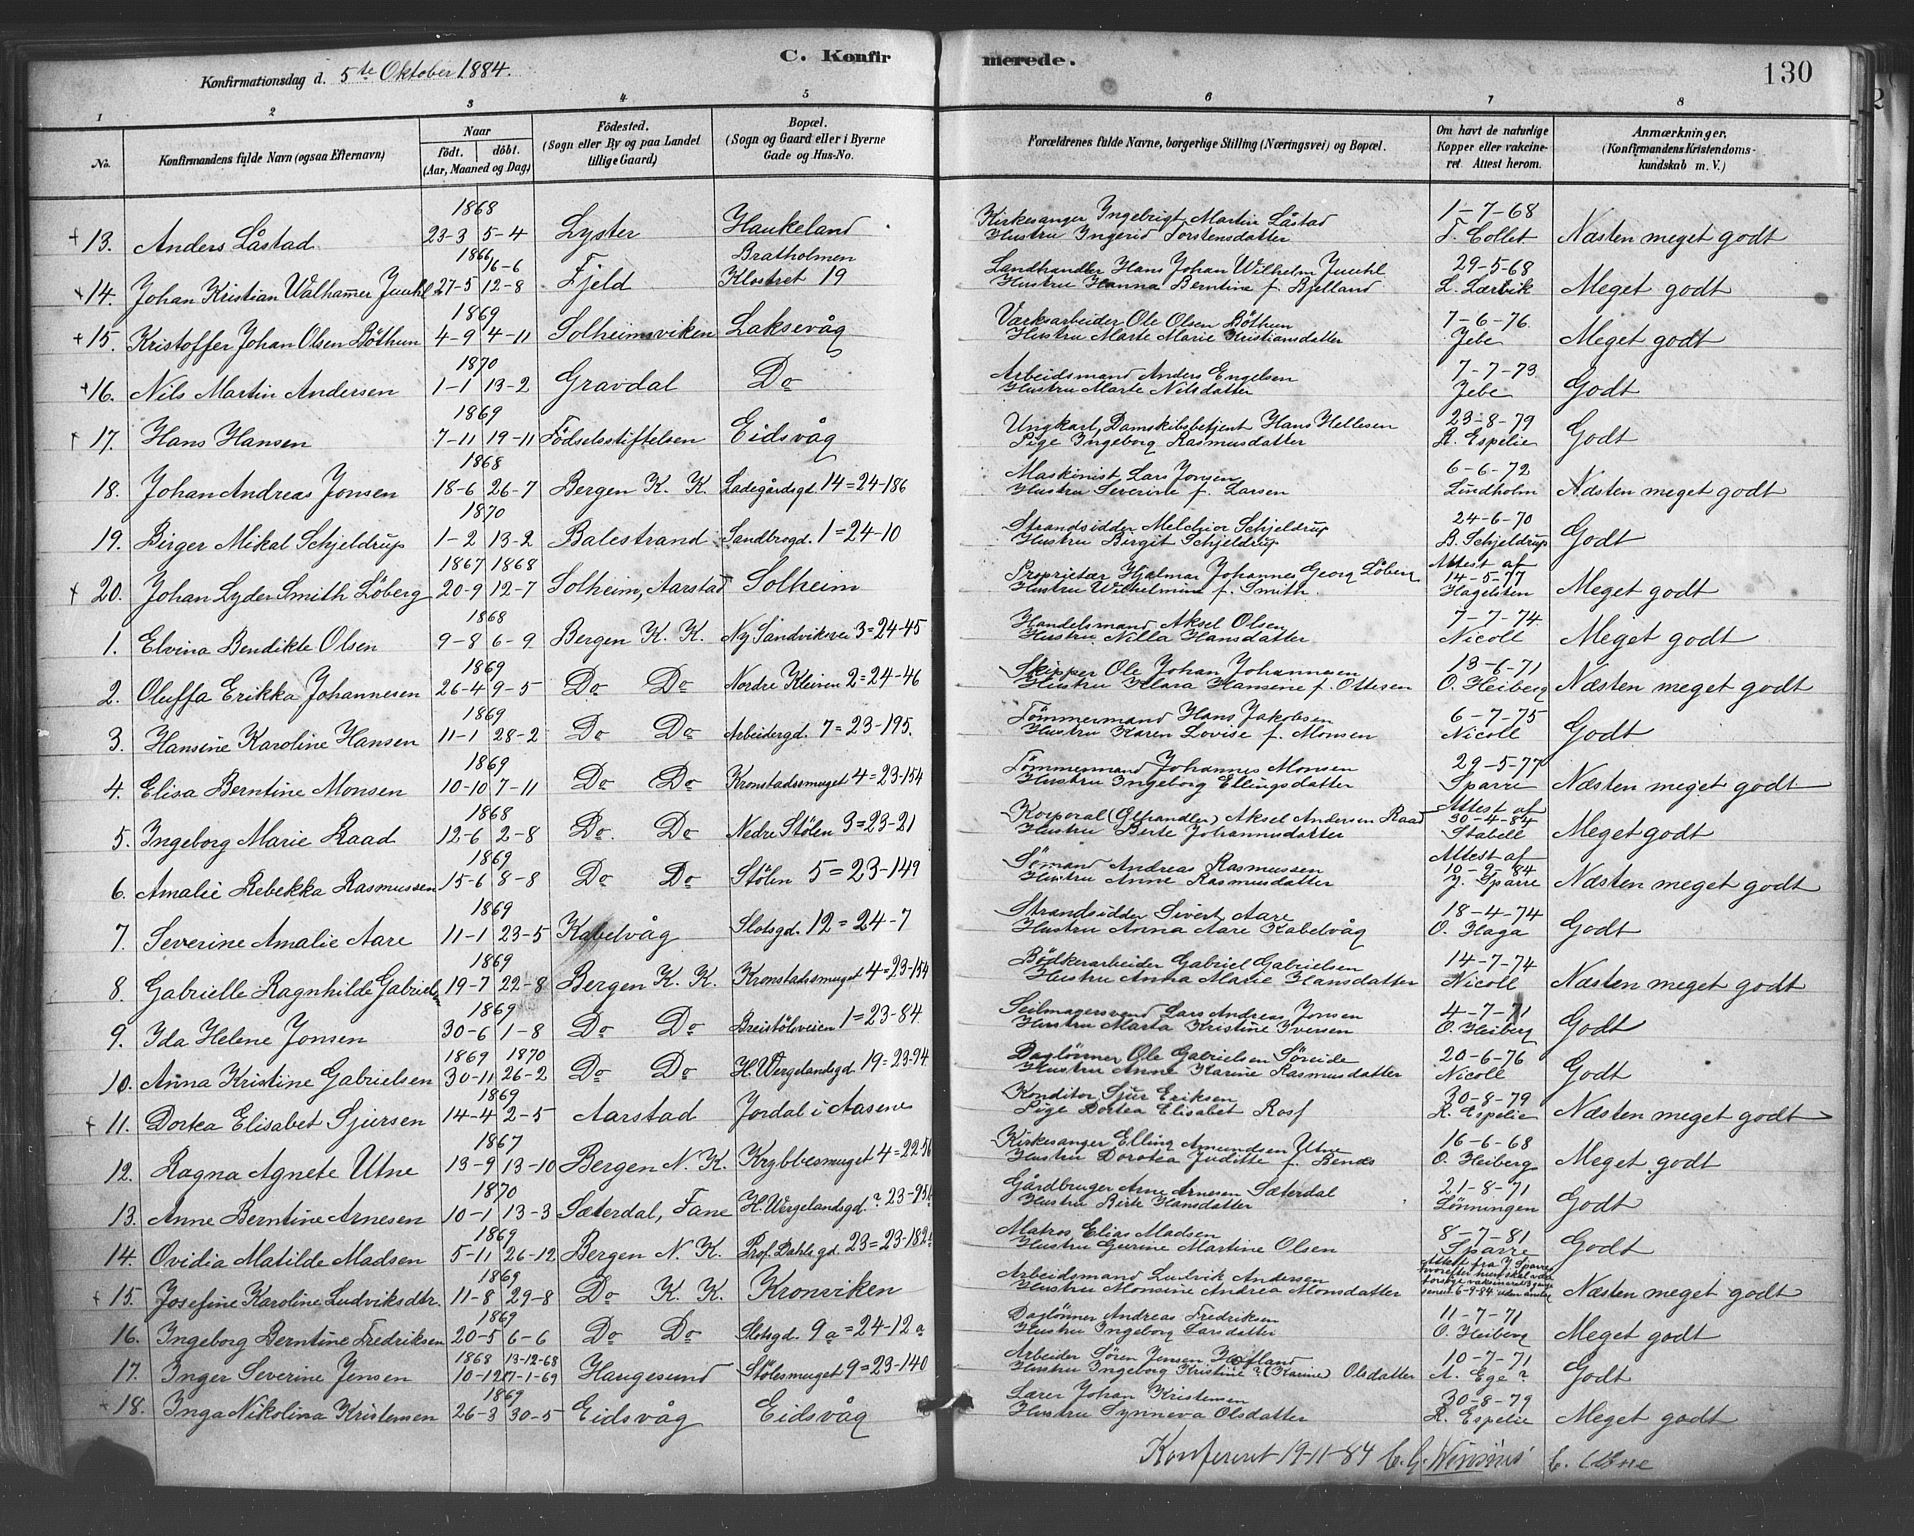 Konfirmationsdag d. 5te Oktober 1884.
C. Konfir merede.
130
1 2 3 4 5 6 7 8
No. Konfirmandens fulde Navn (ogsaa Efternavn) Naar født. døbt. (Aar, Maaned og Dag) Fødested. (Sogn eller By og paa Landet tillige Gaard) Bopæl. (Sogn og Gaard eller i Byerne Gade og Hus-No.) Forældrenes fulde Navne, borgerlige Stilling (Næringsvei) og Bopæl. Om havt de naturlige Kopper eller vakcineret. Attest herom. Anmærkninger. (Konfirmandens Kristendomskundskab m. V.)
1868
13. Anders Låstad 23-3 5-4 Lyster Haukeland Kirkesanger Ingebrigt Martin Låstad Hustru Ingerid Torstensdatter 1-7-68 T. Collet Næsten meget godt
1866 16-6
14. Johan Kristian Walhammer Juuhl 27-5 12-8 Fjeld Bratholmen Klostret 19 Landhandler Hans Johan Wilhelm Juuhl Hustru Hanna Berntine f. Bjelland 29-5-68 L. Lærvik Meget godt
1869
15. Kristoffer Johan Olsen Bøthun 4-9 4-11 Solheimsviken Laksevåg Værksarbeider Ole Olsen Bøthun Hustru Marte Marie Kristiansdatter 7-6-76 Jebe Meget godt
1870
16. Nils Martin Andersen 1-1 13-2 Gravdal Do Arbeidsmand Anders Engelsen Hustru Marte Nilsdatter 7-7-73 Jebe Godt
1869
17. Hans Hansen 7-11 19-11 Fødselsstiftelsen Eidsvåg Ungkarl, Damskibsbetjent Hans Hellesen Pige Ingeborg Rasmusdatter 23-8-79 R. Espelie Godt
1868
18. Johan Andreas Jonsen 18-6 26-7 Bergen K. K. Ladegårdsgd. 14=24-186 Maskinist Lars Jonsen Hustru Severine f. Larsen 6-6-72 Lindholm Næsten meget godt
1870
19. Birger Mikal Schjeldrup 1-2 13-2 Balestrand Sandbrogd. 1=24-10 Strandsidder Melchior Schjeldrup Hustru Birgit Schjeldrup 24-6-70 B. Schjeldrup Godt
1867 1868
20. Johan Lyder Smith Løberg 20-9 12-7 Solheim, Aarstad Solheim Proprietær Hjalmar Johannes Georg Løberg Hustru Wilhelmine f. Smith. Attest af 14-5-77 Hagelsten Meget godt
1868
1. Elvina Bendikte Olsen 9-8 6-9 Bergen K. K. Ny Sandviksvei 3=24-45 Handelsmand Aksel Olsen Hustru Nilla Hansdatter 7-7-74 Nicoll Meget godt
1869
2. Oluffa Erikka Johannesen 26-4 9-5 Do Do Nordre Kleiven 2=24-46 Skipper Ole Johan Johannesen Hustru Klara Hansine f. Ottesen 13-6-71 O. Heiberg Næsten meget godt
1869
3. Hansine Karoline Hansen 11-1 28-2 Do Do Arbeidergd. 7=23-195. Tømmermand Hans Jakobsen Hustru Karen Lovise f. Monsen 6-7-75 Nicoll Godt
1869
4. Elisa Berntine Monsen 10-10 7-11 Do Do Kronstadsmuget 4=23-154 Tømmermand Johannes Monsen Hustru Ingeborg Ellingsdatter 29-5-77 Sparre Næsten meget godt
1868
5. Ingeborg Marie Raad 12-6 2-8 Do. Do Nedre Stølen 3=23-21 Korporal (Ølhandler) Aksel Andersen Raad Hustru Birte Johannesdatter Attest af 30-4-84 Stabell Meget godt
1869
6. Amalie Rebekka Rasmussen 15-6 8-8 Do Do Stølen 5=23-149 Sømand Andreas Rasmussen Hustru Anne Rasmusdatter Attest af 10-9-84 J. Sparre Næsten meget godt
1869
7. Severine Amalie Aare 11-1 23-5 Kabelvåg Slotsgd. 12=24-7 Strandsidder Sivert Aare Hustru Anna Aare Kabelvåg 18-4-74 O. Haga Godt
1869
8. Gabrielle Ragnhilde Gabriels. 19-7 22-8 Bergen K. K. Kronstadsmuget 4=23-154 Bødkerarbeider Gabriel Gabrielsen Hustru Anna Marie Hansdatter 14-7-74 Nicoll Næsten meget godt
1869
9. Ida Helene Jonsen 30-6 1-8 Do Do Breistølsveien 1=23-84. Seilmagersvend Lars Andreas Jonsen Hustru Marta Kristine Iversen 4-7-71 O. Heiberg Godt
1869 1870
10. Anna Kristine Gabrielsen 30-11 26-2 Do Do H. Wergelandsgd. 19=23-94 Daglønner Ole Gabrielsen Søreide Hustru Anne Karine Rasmusdatter 20-6-76 Nicoll Godt
1869
11. Dortea Elisabet Sjursen 14-4 2-5 Aarstad Jordal i Aasene Konditor Sjur Eriksen Pige Dortea Elisabet Rosf 30-8-79 R. Espelie Næsten meget godt
1867
12. Ragna Agnete Utne 13-9 13-10 Bergen N. K. Krybbesmuget 4=22-56 Kirkesanger Elling Amundsen Utne Hustru Dorotea Juditte f. Bends 16-6-68 O. Heiberg Meget godt
1870
13. Anne Berntine Arnesen 10-1 13-3 Sæterdal, Fane H. Wergelandsgd. ? 23-95b Gårdbruger Arne Arnesen Sæterdal Hustru Birte Hansdatter 21-8-71 Lønningen Godt
1869
14. Ovidia Matilde Madsen 5-11 26-12 Bergen N. K. Prof. Dahls gd. 23=23-182 Matros Elias Madsen Hustru Gurine Martine Olsen 8-7-81 Sparre Godt
1869
15. Josefine Karoline Ludviksdtr. 11-8 29-8 Do K. K. Kronviken Arbeidsmand Ludvik Andersen Hustru Monsine Andrea Monsdatter Attest fra J. Sparre Næsten meget godt
1869
16. Ingeborg Berntine Fredriksen 20-5 6-6 Do Do Slotsgd. 9a=24-12a Daglønner Andreas Fredriksen Hustru Ingeborg Larsdatter 11-7-71 O. Heiberg Meget godt
1868 13-12-68
17. Inger Severine Jensen 10-12 17-1-69 Haugesund Stølesmuget 9=23-140 Arbeider Søren Jensen Hustru Ingeborg Kristine ? (Karine) Olsdatter 10-7-71 A. Ege ? Godt
1869
18. Inga Nikolina Kristensen 26-3 30-5 Eidsvåg Eidsvåg Lærer Johan Kristensen Hustru Synneva Olsdatter 30-8-79 R. Espelie Meget godt
Konfereret 19-11-84